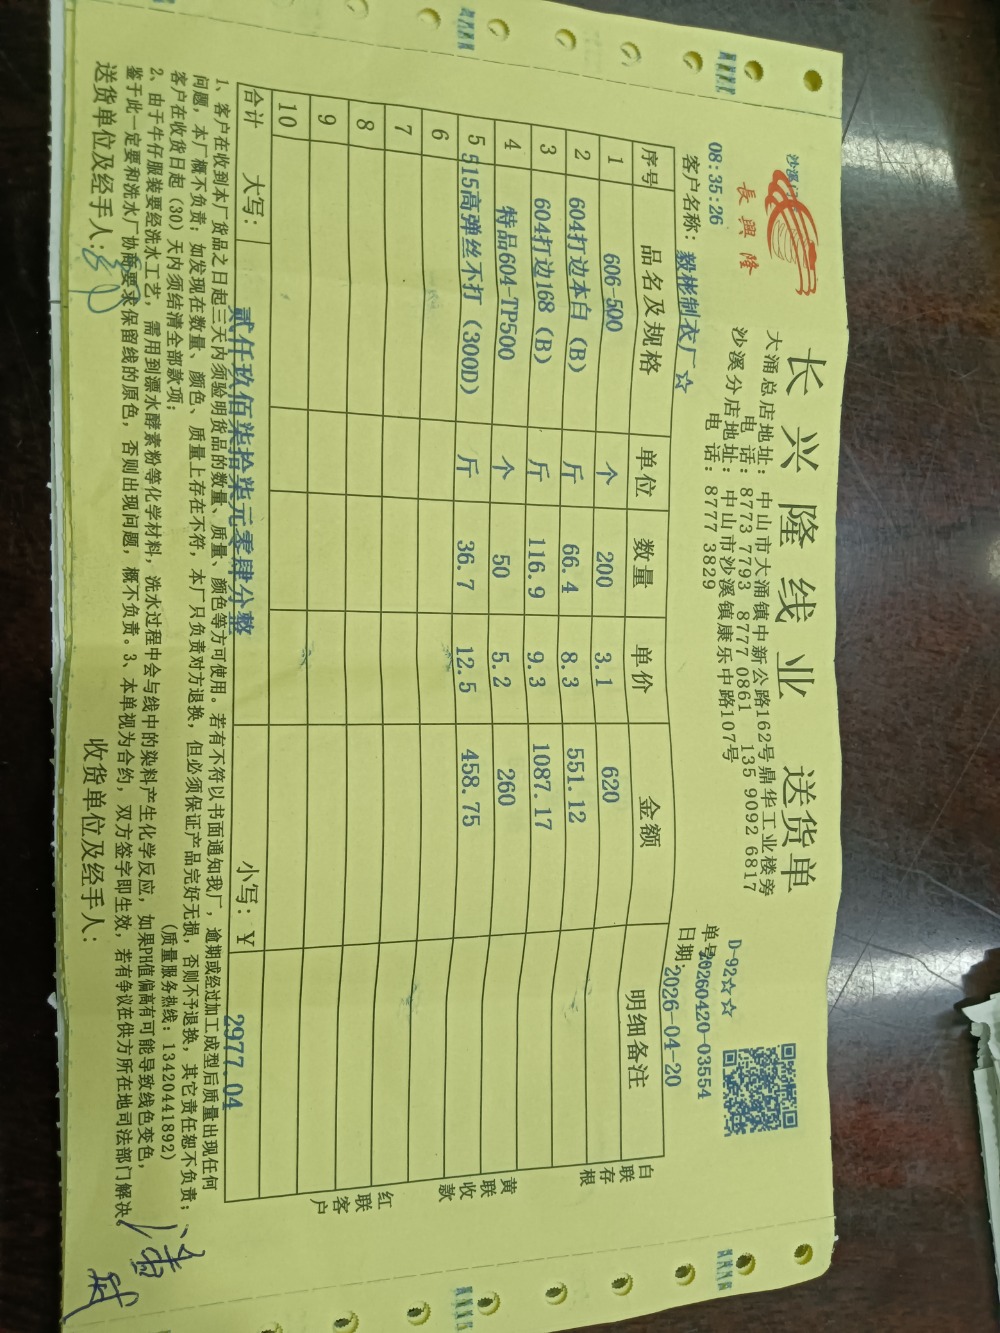 長興隆
长兴隆线业 送货单
大涌总店地址: 中山市大涌镇中新公路162号鼎华工业楼旁
电 话: 8773 7793 8777 0861 135 9092 6817
沙溪分店地址: 中山市沙溪镇康乐中路107号
电 话: 8777 3829
D-92☆☆
单号:20260420-03554
08:35:26
日期:2026-04-20
客户名称: 毅彬制衣厂☆
序号 品名及规格 单位 数量 单价 金额 明细备注
1 606-500 个 200 3.1 620
2 604打边本白(B) 斤 66.4 8.3 551.12
3 604打边168(B) 斤 116.9 9.3 1087.17
4 特品604-TP500 个 50 5.2 260
5 515高弹丝不打(300D) 斤 36.7 12.5 458.75
6
7
8
9
10
合计 大写: 贰仟玖佰柒拾柒元零肆分整 小写: ¥ 2977.04
白联存根
黄联收款
红联客户
1、客户在收到本厂货品之日起三天内须验明货品的数量、质量、颜色等方可使用。若有不符以书面通知我厂,逾期或经过加工成型后质量出现任何
问题,本厂概不负责;如发现在数量、颜色、质量上存在不符,本厂只负责对方退换,但必须保证产品完好无损,否则不予退换,其它责任恕不负责;
客户在收货日起(30)天内须结清全部款项; (质量服务热线:13420441892)
2、由于牛仔服装要经洗水工艺,需用到漂水酵素粉等化学材料,洗水过程中会与线中的染料产生化学反应,如果PH值偏高有可能导致线色变色,
鉴于此一定要和洗水厂协商要求保留线的原色,否则出现问题,概不负责。3、本单视为合约,双方签字即生效,若有争议在供方所在地司法部门解决。
送货单位及经手人: 收货单位及经手人: